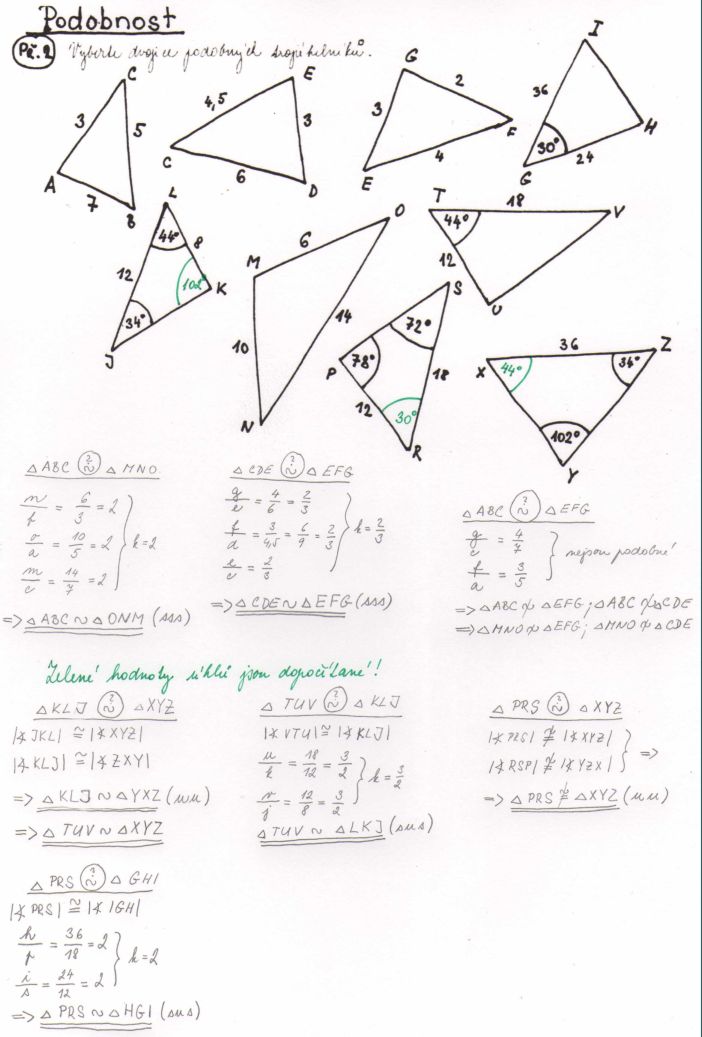 Podobnost
Př. 2 Vyberte dvojice podobných trojúhelníků.
C
3
5
A
7
B
E
4,5
3
C
6
D
G
2
3
F
4
E
I
36
H
30°
24
G
L
44°
8
12
102°
K
34°
J
O
6
M
14
10
N
T
18
V
44°
12
U
S
72°
P
78°
18
12
30°
R
36
Z
X
44°
34°
102°
Y
△ABC ≟~ △MNO
n/f = 6/3 = 2
o/a = 10/5 = 2
m/c = 14/7 = 2
k=2
=> △ABC ~ △ONM (sss)
△CDE ≟~ △EFG
g/e = 4/6 = 2/3
f/d = 3/4,5 = 6/9 = 2/3
e/c = 2/3
k = 2/3
=> △CDE ~ △EFG (sss)
△ABC ?~ △EFG
g/c = 4/7
f/a = 3/5
nejsou podobné
=> △ABC ≁ △EFG; △ABC ≁ △CDE
=> △MNO ≁ △EFG; △MNO ≁ △CDE
Zelené hodnoty úhlů jsou dopočítané!
△KLJ ?~ △XYZ
|∢JKL| ≅ |∢XYZ|
|∢KLJ| ≅ |∢ZXY|
=> △KLJ ~ △YXZ (uu)
=> △TUV ~ △XYZ
△TUV ?~ △KLJ
|∢VTU| ≅ |∢KLJ|
u/k = 18/12 = 3/2
v/j = 12/8 = 3/2
k = 3/2
△TUV ~ △LKJ (sus)
△PRS ?~ △XYZ
|∢PRS| ≇ |∢XYZ|
|∢RSP| ≇ |∢YZX|
=>
=> △PRS ≁ △XYZ (uu)
△PRS ?~ △GHI
|∢PRS| ≅ |∢IGH|
h/p = 36/18 = 2
i/s = 24/12 = 2
k=2
=> △PRS ~ △HGI (sus)